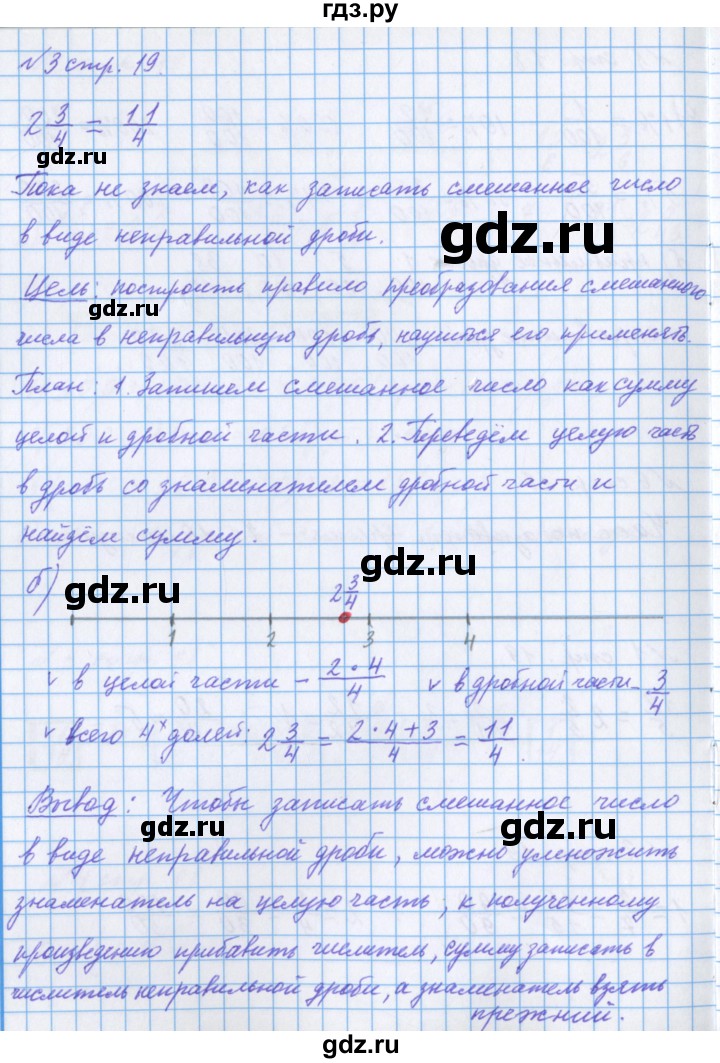 гдз.ру
№3 стр. 19.
2 3/4 = 11/4
gdz.ru
gdz.ru
Пока не знаем, как записать смешанное число
gdz.ru
в виде неправильной дроби.
gdz.ru
Цель: построить правило преобразования смешанного
числа в неправильную дробь, научиться его применять.
gdz.ru
gdz.ru
План: 1. Запишем смешанное число как сумму
целой и дробной части. 2. Переведём целую часть
gdz.ru
gdz.ru
в дробь со знаменателем дробной части и
найдём сумму.
gdz.ru
б)
gdz.ru
2 3/4
1 2 3 4
v в целой части – 2·4/4 v в дробной части – 3/4
gdz.ru
gdz.ru
v Всего 4х долей: 2 3/4 = 2·4+3/4 = 11/4.
Вывод: Чтобы записать смешанное число
gdz.ru
gdz.ru
в виде неправильной дроби, можно умножить
знаменатель на целую часть, к полученному
gdz.ru
gdz.ru
произведению прибавить числитель, сумму записать в
числитель неправильной дроби, а знаменатель взять
прежний.
gdz.ru
gdz.ru